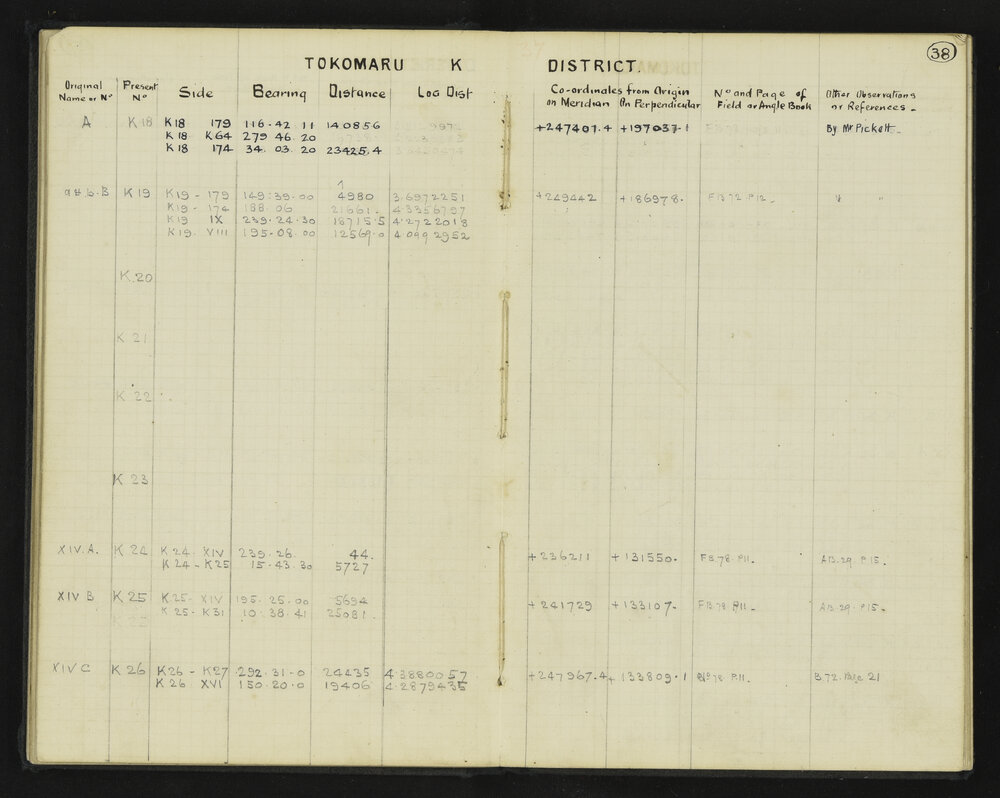 38
TOKOMARU K DISTRICT.
Original Name or No Present No Side Bearing Distance Log Dist Co-ordinates from Origin on Meridian On Perpendicular No and Page of Field or Angle Book Other Observations or References
A K18 K18 179 116.42 11 14085.6 +247407.4 +197037.1 By Mr Pickett
K18 K64 279 46.20
K18 174 34.03.20 23425.4
K19 K19 - 179 149:39.00 4980 3.6972251 +249442 +186978. FB 72 P12 " "
K19 - 174 188.06 21661. 4.3356797
K19 IX 239.24.30 18715.5 4.2722018
K19. VIII 195.08.00 12569.0 4.0992952
K.20
K 21
K 22
K 23
XIV.A. K 24 K 24. XIV 239.26. 44. +236211 +131550. FB.78.P11. AB.29.P15.
K 24 - K25 15.43.30 5727
XIV B K 25 K 25. XIV 195.25.00 5694 +241729 +133107. FB 78 P11. AB.29.P15.
K 25. K31 10.38.41 25081.
XIV C K 26 K26 - K27 292.31.0 24435 4.3880057 +247967.4 +133809.1 No 78 P11. B72. Page 21
K 26 XVI 150.20.0 19406 4.2879435